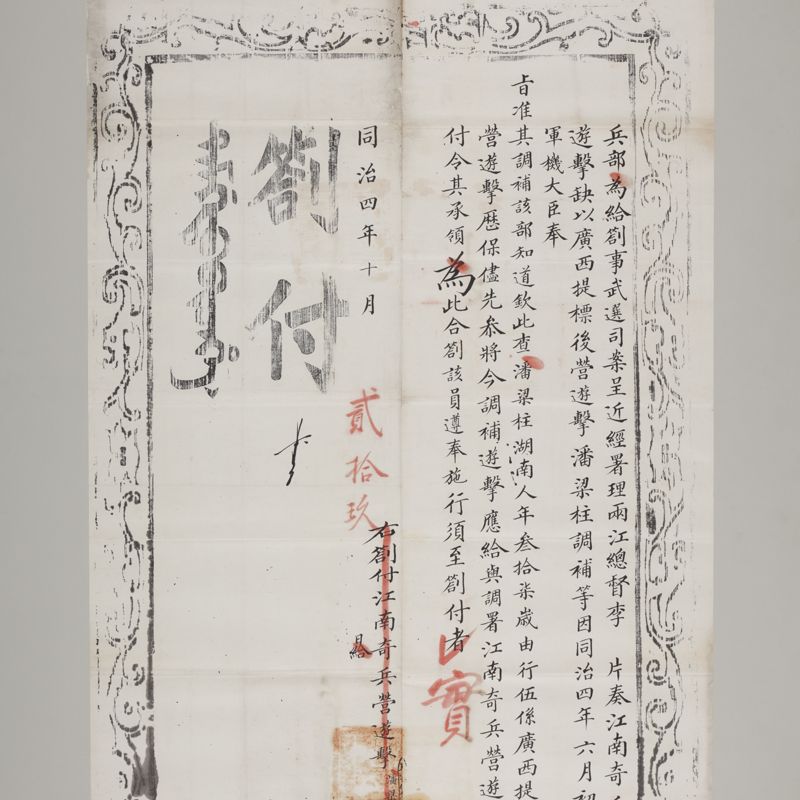 兵部為給劄事武選司案呈近經署理兩江總督李 片奏江南奇
遊擊缺以廣西提標後營遊擊潘梁柱調補等因同治四年六月初
軍機大臣奉
旨准其調補該部知道欽此查潘梁柱湖南人年叁拾柒歲由行伍係廣西提
營遊擊歷保儘先叅將今調補遊擊應給與調署江南奇兵營遊
付令其承領為此合劄該員遵奉施行須至劄付者
實
右劄付江南奇兵營遊擊潘
同治四年十月
貳拾玖
日給
劄付